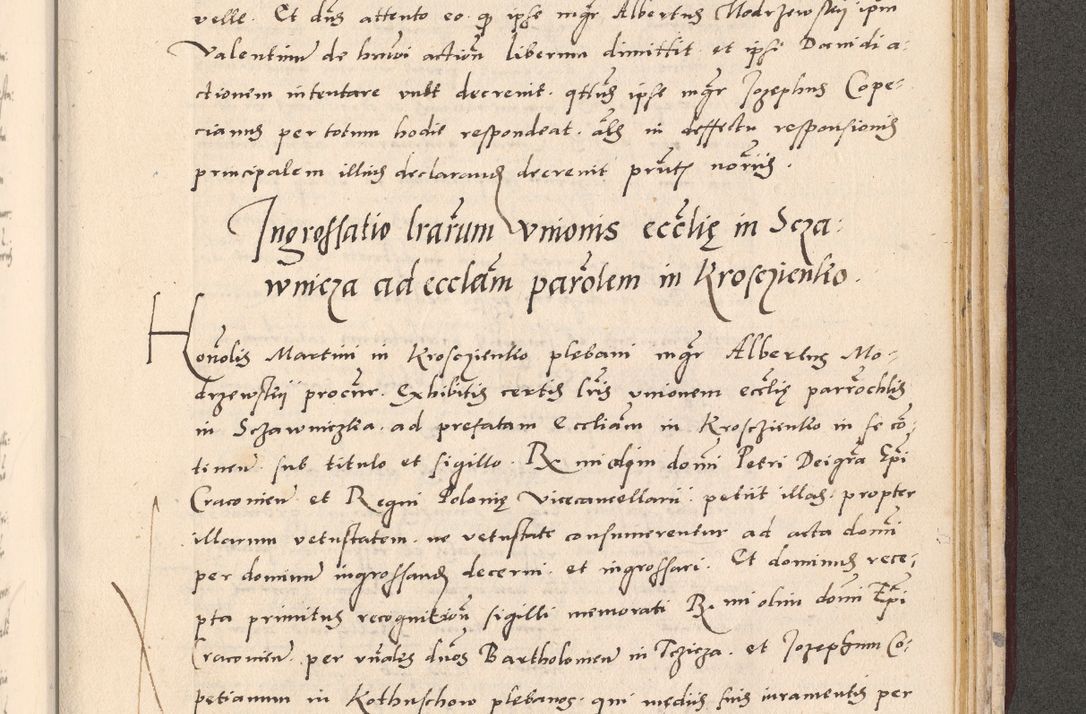 velle. Et dūs attento eo q̄ ipse mgr̄ Albertus Modrzewskij ipm̄
Valentinū de hmōi actiōn liberum dimittit et ipsi Danidi a:
ctionem intentare vult decrevit. qttus ipse mgr̄ Jozephus Cope:
cianus per totum hodie respondeat. als in deffectu responsionis
principalem illius declarand decrevit pn̄tj notarijs.
Ingrossatio lrarum vnionis eccl̄ię in Scza:
wnicza ad ecclām parōlem in Krosczienko.
Honōlis Martini in Krosczienko plebani mgr̄ Albertus Mo:
drzewskij procūr. Exhibitis certis lr̄is vnionem eccl̄ię parrochlis
in Sczawniczka. ad prefatam Eccliām in Krosczienko in se cō:
tinen̄. sub titulo et sigillo. Rx. mi olim domī Petri Dei grā Epī
Cracovien̄ et Regni Polonię vicecancellarii petiit illas. propter
illarum vetustatem. ne vetustate consumerentur ad acta domī
per dominū ingrossand decerni. et ingrossari. Et dominus rece:
pta primitus recognitiōn sigilli memorati Rx. mi olim domī Epī
Cracovien̄. per vn̄ales dn̄os Bartholomeū in Tczicza. et Jozephum Co:
petianum in Kothuschow plebanos. qui medijs suis iuramentis per